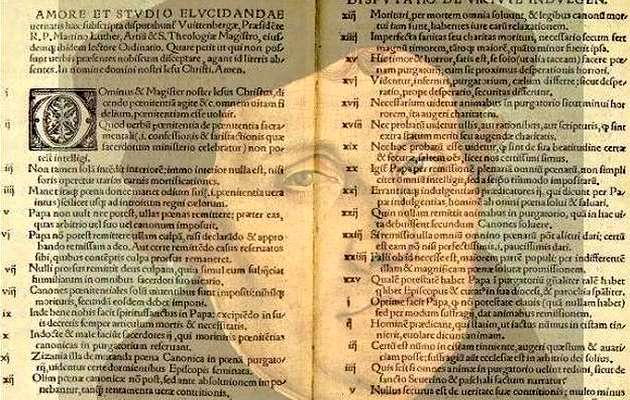 AMORE ET STVDIO ELVCIDANDAE
ueritatis hæc subscripta disputabunť Vuittenbergæ, Præsidẽte
R. P. Martino Luther, Artiũ & S. Theologiæ Magistro, eius-
dem ibidem lectore Ordinario. Quare petit ut qui non pos-
sunt uerbis præsentes nobiscum disceptare, agant id literis ab-
sentes. In nomine domini nostri Iesu Christi, Amen.
i Ominus & Magister noster Iesus Christus, di-
cendo pœnitentiã agite &c. omnem uitam fi
delium, pœnitentiam esse uoluit.
ij Quod uerbũ pœnitentiæ de pœnitentia sacra-
mentali (i. confessionis & satisfactionis quæ
sacerdotum ministerio celebratur) non po-
test intelligi.
iij Non tamen solã intẽdit interiorẽ: immo interior nulla est, nisi
foris operetur uarias carnis mortificationes.
iiij Manet itaq pœna donec manet odium sui (i. pœnitentia uera
intus) scilicet usq ad introitum regni cælorum.
v Papa non uult nec potest, ullas pœnas remittere: præter eas,
quas arbitrio uel suo uel canonum imposuit.
vj Papa nõ potest remittere ullam culpã, nisi declarãdo & appro
bando remissam a deo. Aut certe remittẽdo casus reseruatos
sibi, quibus contẽptis culpa prorsus remaneret.
vij Nulli prorsus remittit deus culpam, quin simul eum subijciat
humiliatum in omnibus sacerdoti suo uicario.
viij Canones pœnitentiales solũ uiuentibus sunt impositi: nihilq
morituris, secundũ eosdem debet imponi.
ix Inde bene nobis facit spiritussanctus in Papa: excipiẽdo in su
is decretis semper articulum mortis & necessitatis.
x Indocte & male faciũt sacerdotes ij, qui morituris pœnitẽtias
canonicas in purgatorium reseruant.
xi Zizania illa de mutanda pœna Canonica in pœnã purgato-
rij, uidentur certe dormientibus Episcopis seminata.
xij Olim pœnæ canonicæ nõ post, sed ante absolutionem im po-
DISPVTATIO DE VIRTVTE INDVLGEN.
xiij Morituri, per mortem omnia soluunt, & legibus canonũ mor-
tui iam sunt, habentes iure earũ relaxationem.
xiiij Imperfecta sanitas seu charitas morituri, necessario secum fert
magnũ timorem, tãtoq maiorẽ, quãto minor fuerit ipsa.
xv Hic timor & horror, satis est, se solo (ut alia taceam) facere pœ
nam purgatorij, cum sit proximus desperationis horrori.
xvj Videntur, infernus, purgatoriũ, cælum differre: sicut despe-
ratio, prope desperatio, securitas differunt.
xvij Necessarium uidetur animabus in purgatorio sicut minui hor
rorem, ita augeri charitatem.
xviij Nec probatũ uidetur ullis, aut rationibus, aut scripturis, q sint
extra statũ meriti seu augendæ charitatis.
xix Nec hoc probatũ esse uidetur, q sint de sua beatitudine certæ
& securæ saltem oẽs, licet nos certissimi simus.
xx Igiť Papa per remissionẽ plenariã omniũ pœnarũ, non simpli
citer omniũ intelligit, sed a seipso tãtummodo impositarũ.
xxj Errant itaq indulgentiarũ prædicatores ij, qui dicunt per Pa-
pæ indulgentias, hominẽ ab omni pœna solui & saluari.
xxij Quin nullam remittit animabus in purgatorio, quã in hac ui-
ta debuissent secundum Canones soluere.
xxiij Si remissio ulla omniũ omnino pœnarũ põt alicui dari; certũ
est eam nõ nisi perfectissimis, i. paucissimis dari.
xxiiij Falli ob id necesse est, maiorem partẽ populi: per indifferentẽ
illam & magnificam pœnæ solutæ promissionem.
xxv Qualẽ potestatẽ habet Papa ĩ purgatoriũ gñaliter talẽ habet
quilibet Episcopus & curat9 in sua diocesi, & parochia spãliter.
i Optime facit Papa, q nõ potestate clauis (quã nullam habet)
sed per modum suffragij, dat animabus remissionem.
ij Hominẽ prædicant, qui statim, ut iactus nũmus in cistam tin-
nierit, euolare dicunt animam.
iij Certũ est nũmo in cistam tinniente, augeri quæstum & auari-
ciam posse: suffragiũ aũt ecclesiæ est in arbitrio dei solius.
iiij Quis scit si omnes animæ in purgatorio uelint redimi, sicut de
sancto Seuerino & paschali factum narratur.
v Nullus securus est de ueritate suæ contritionis, multo minus